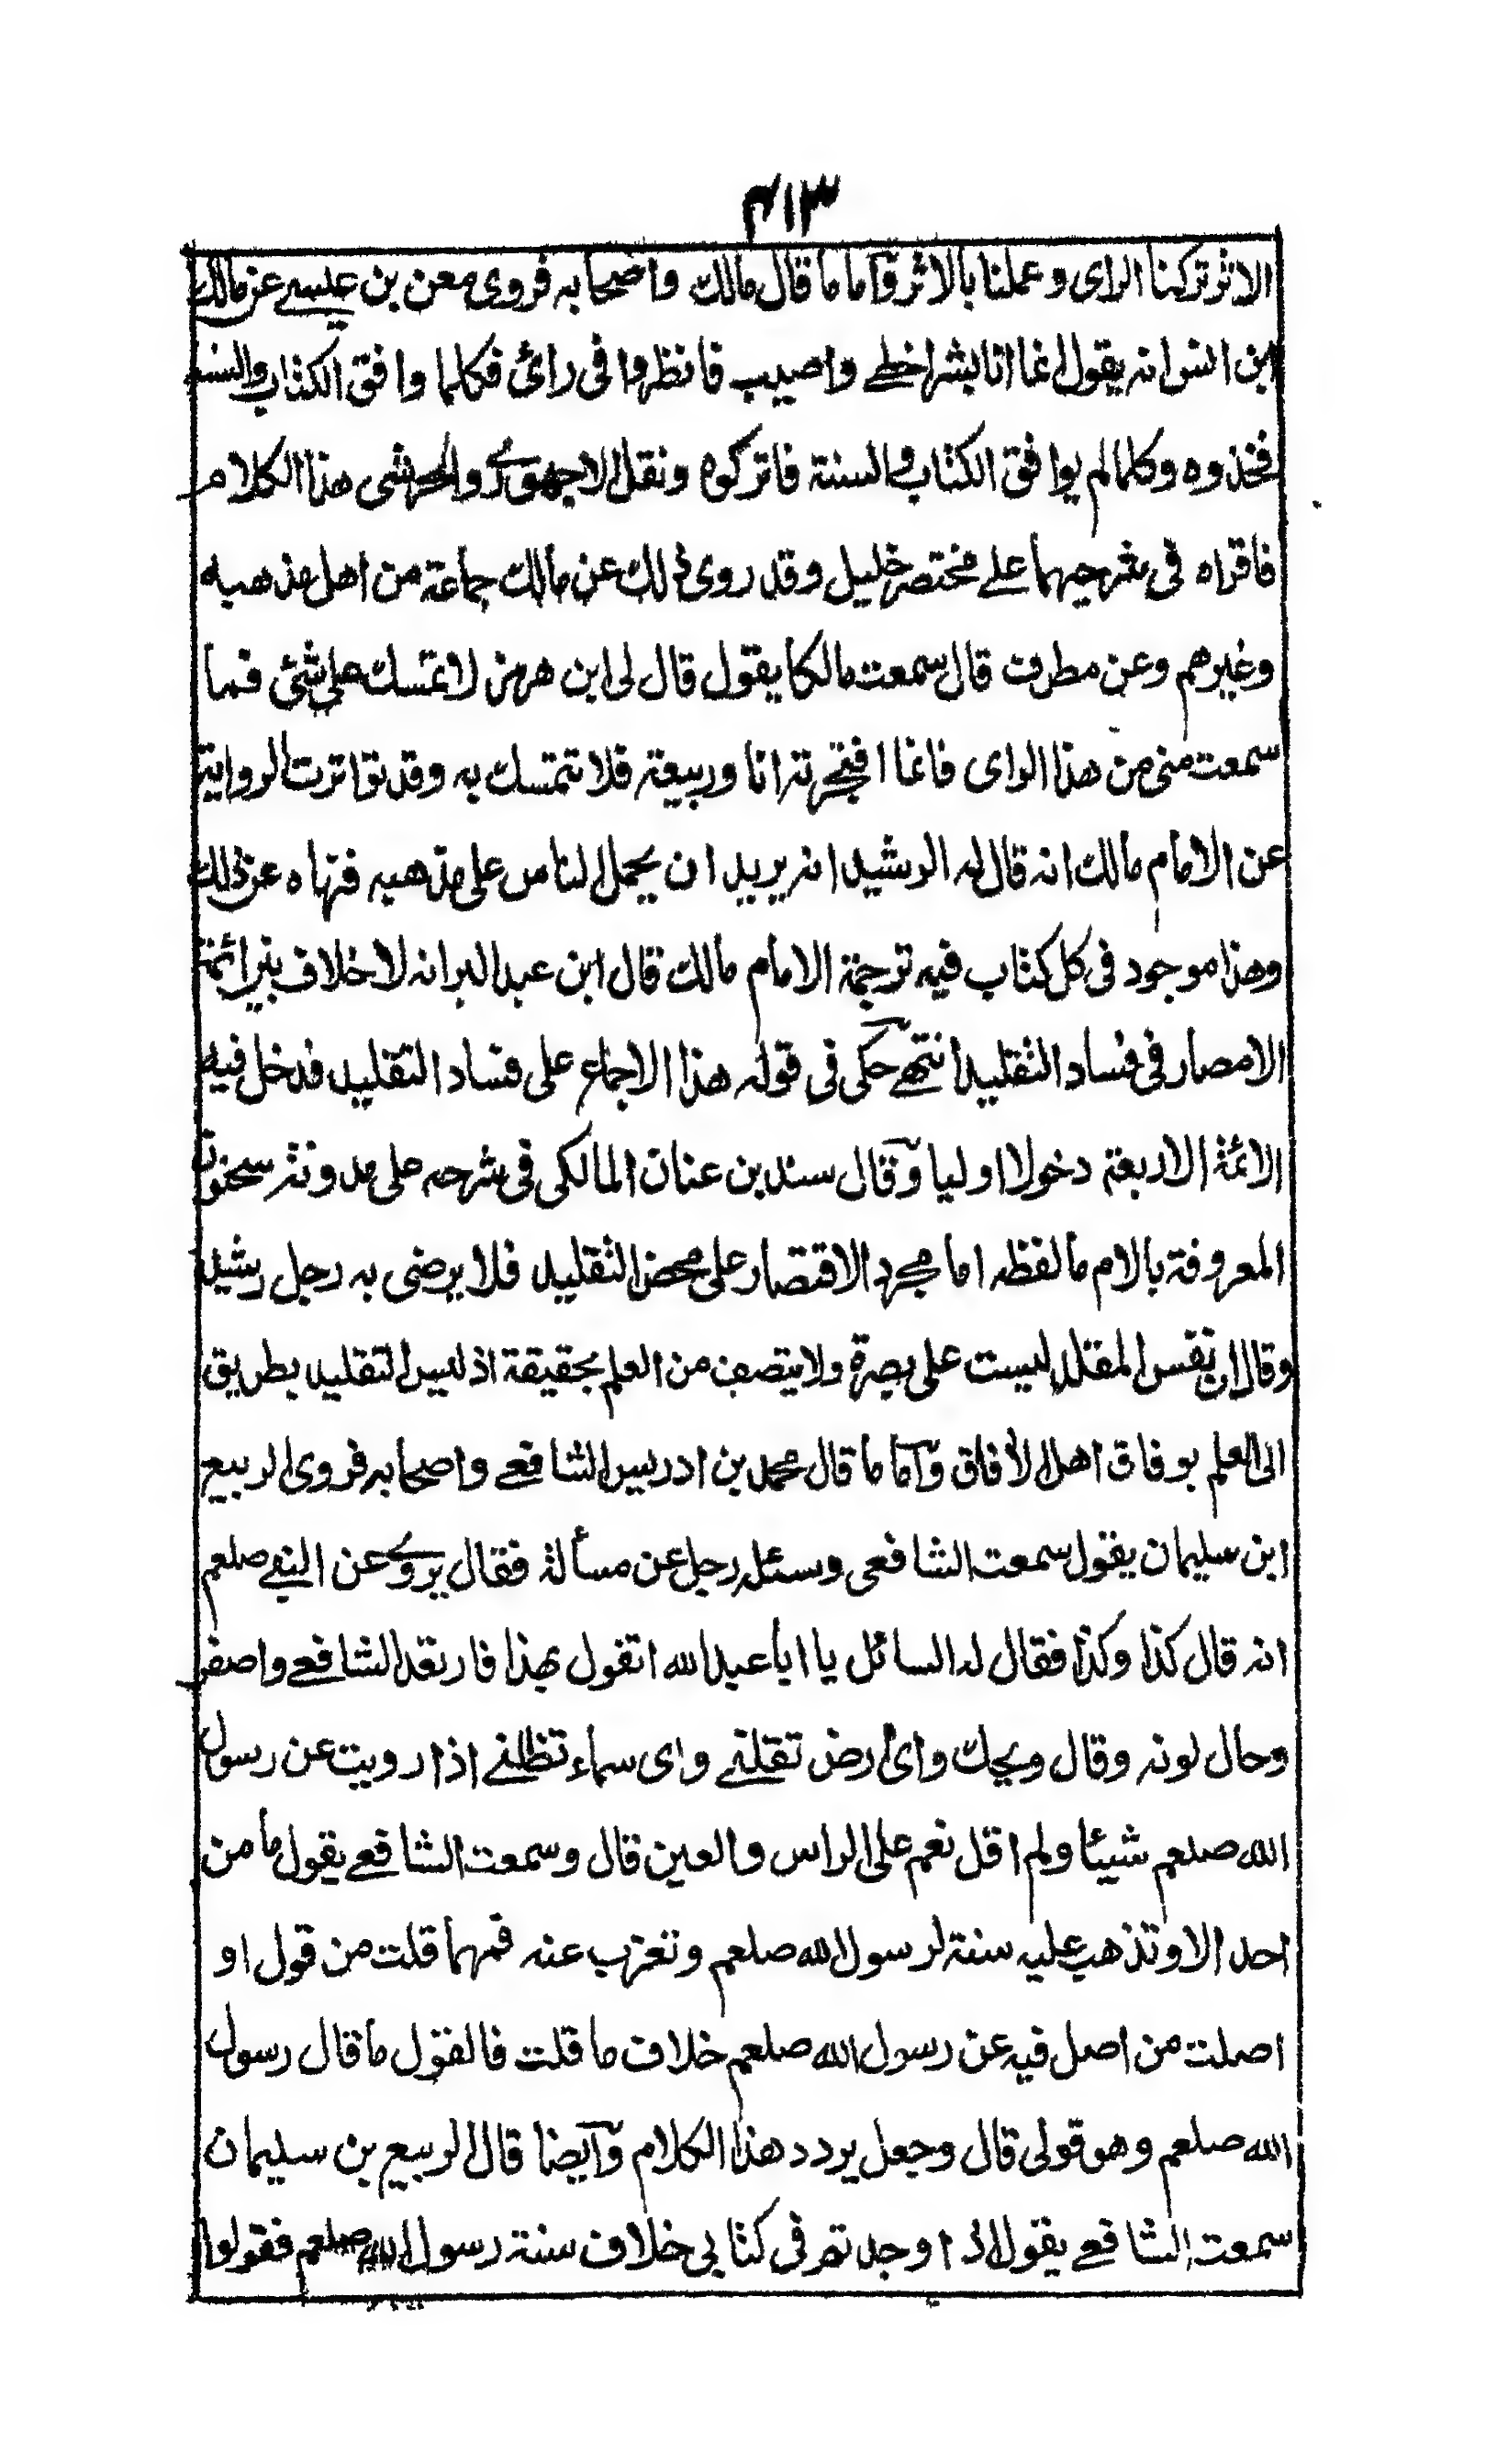 ٤١٣
الاثر تركنا الراى وعملنا بالاثر وآما ما قال مالك واصحابه فروى معن بن عيسے عن مالك
ابن انس انه يقول انما انا بشر اخطے واصيب فانظروا فى رائى فكلما وافق الكتاب والسنة
فخذوه وكلما لم يوافق الكتاب والسنة فاتركوه ونقل الاجهورے والخرشى هذا الكلام
فاقراه فى شرحيهما علے مختصر خليل وقد روى ذلك عن مالك جماعة من اهل مذهبه
وغيرهم وعن مطرف قال سمعت مالكا يقول قال لى ابن هرمز لا تمسك على شئ فما
سمعت منى من هذا الراى فانما افتجرته انا وربيعة فلا تتمسك به وقد تواترت الرواية
عن الامام مالك انه قال له الرشيد انه يريد ان يحمل الناس على مذهبه فنهاه عن ذلك
وهذا موجود فى كل كتاب فيه ترجمة الامام مالك قال ابن عبد البر انه لا خلاف بين ائمة
الامصار فى فساد التقليد انتهے حكى فى قوله هذا الاجماع على فساد التقليد فدخل فيه
الائمة الاربعة دخولا اوليا وقال سند بن عنان المالكى فى شرحه على مدونة سحنون
المعروفة بالام ما لفظه اما مجرد الاقتصار على محض التقليد فلا يرضى به رجل رشيد
وقال ان نفس المقلد ليست على بصيرة ولا يتصف من العلم بحقيقة اذ ليس التقليد بطريق
الى العلم بوفاق اهل الآفاق وآما ما قال محمد بن ادريس الشافعے واصحابه فروى الربيع
ابن سليمان يقول سمعت الشافعى وسئله رجل عن مسألة فقال يروے عن النبے صلعم
انه قال كذا وكذا فقال له السائل يا ابا عبد الله اتقول بهذا فارتعد الشافعے واصفر
وحال لونه وقال ويحك واى ارض تقلنے واى سماء تظلنے اذا رويت عن رسول
الله صلعم شيئا ولم اقل نعم على الراس والعين قال وسمعت الشافعے يقول ما من
احد الا وتذهب عليه سنة لرسول الله صلعم وتعزب عنه فمهما قلت من قول او
اصلت من اصل فيه عن رسول الله صلعم خلاف ما قلت فالقول ما قال رسول
الله صلعم وهو قولى قال وجعل يردد هذا الكلام وآيضا قال الربيع بن سليمان
سمعت الشافعے يقول اذا وجدتم فى كتابى خلاف سنة رسول الله صلعم فقولوا